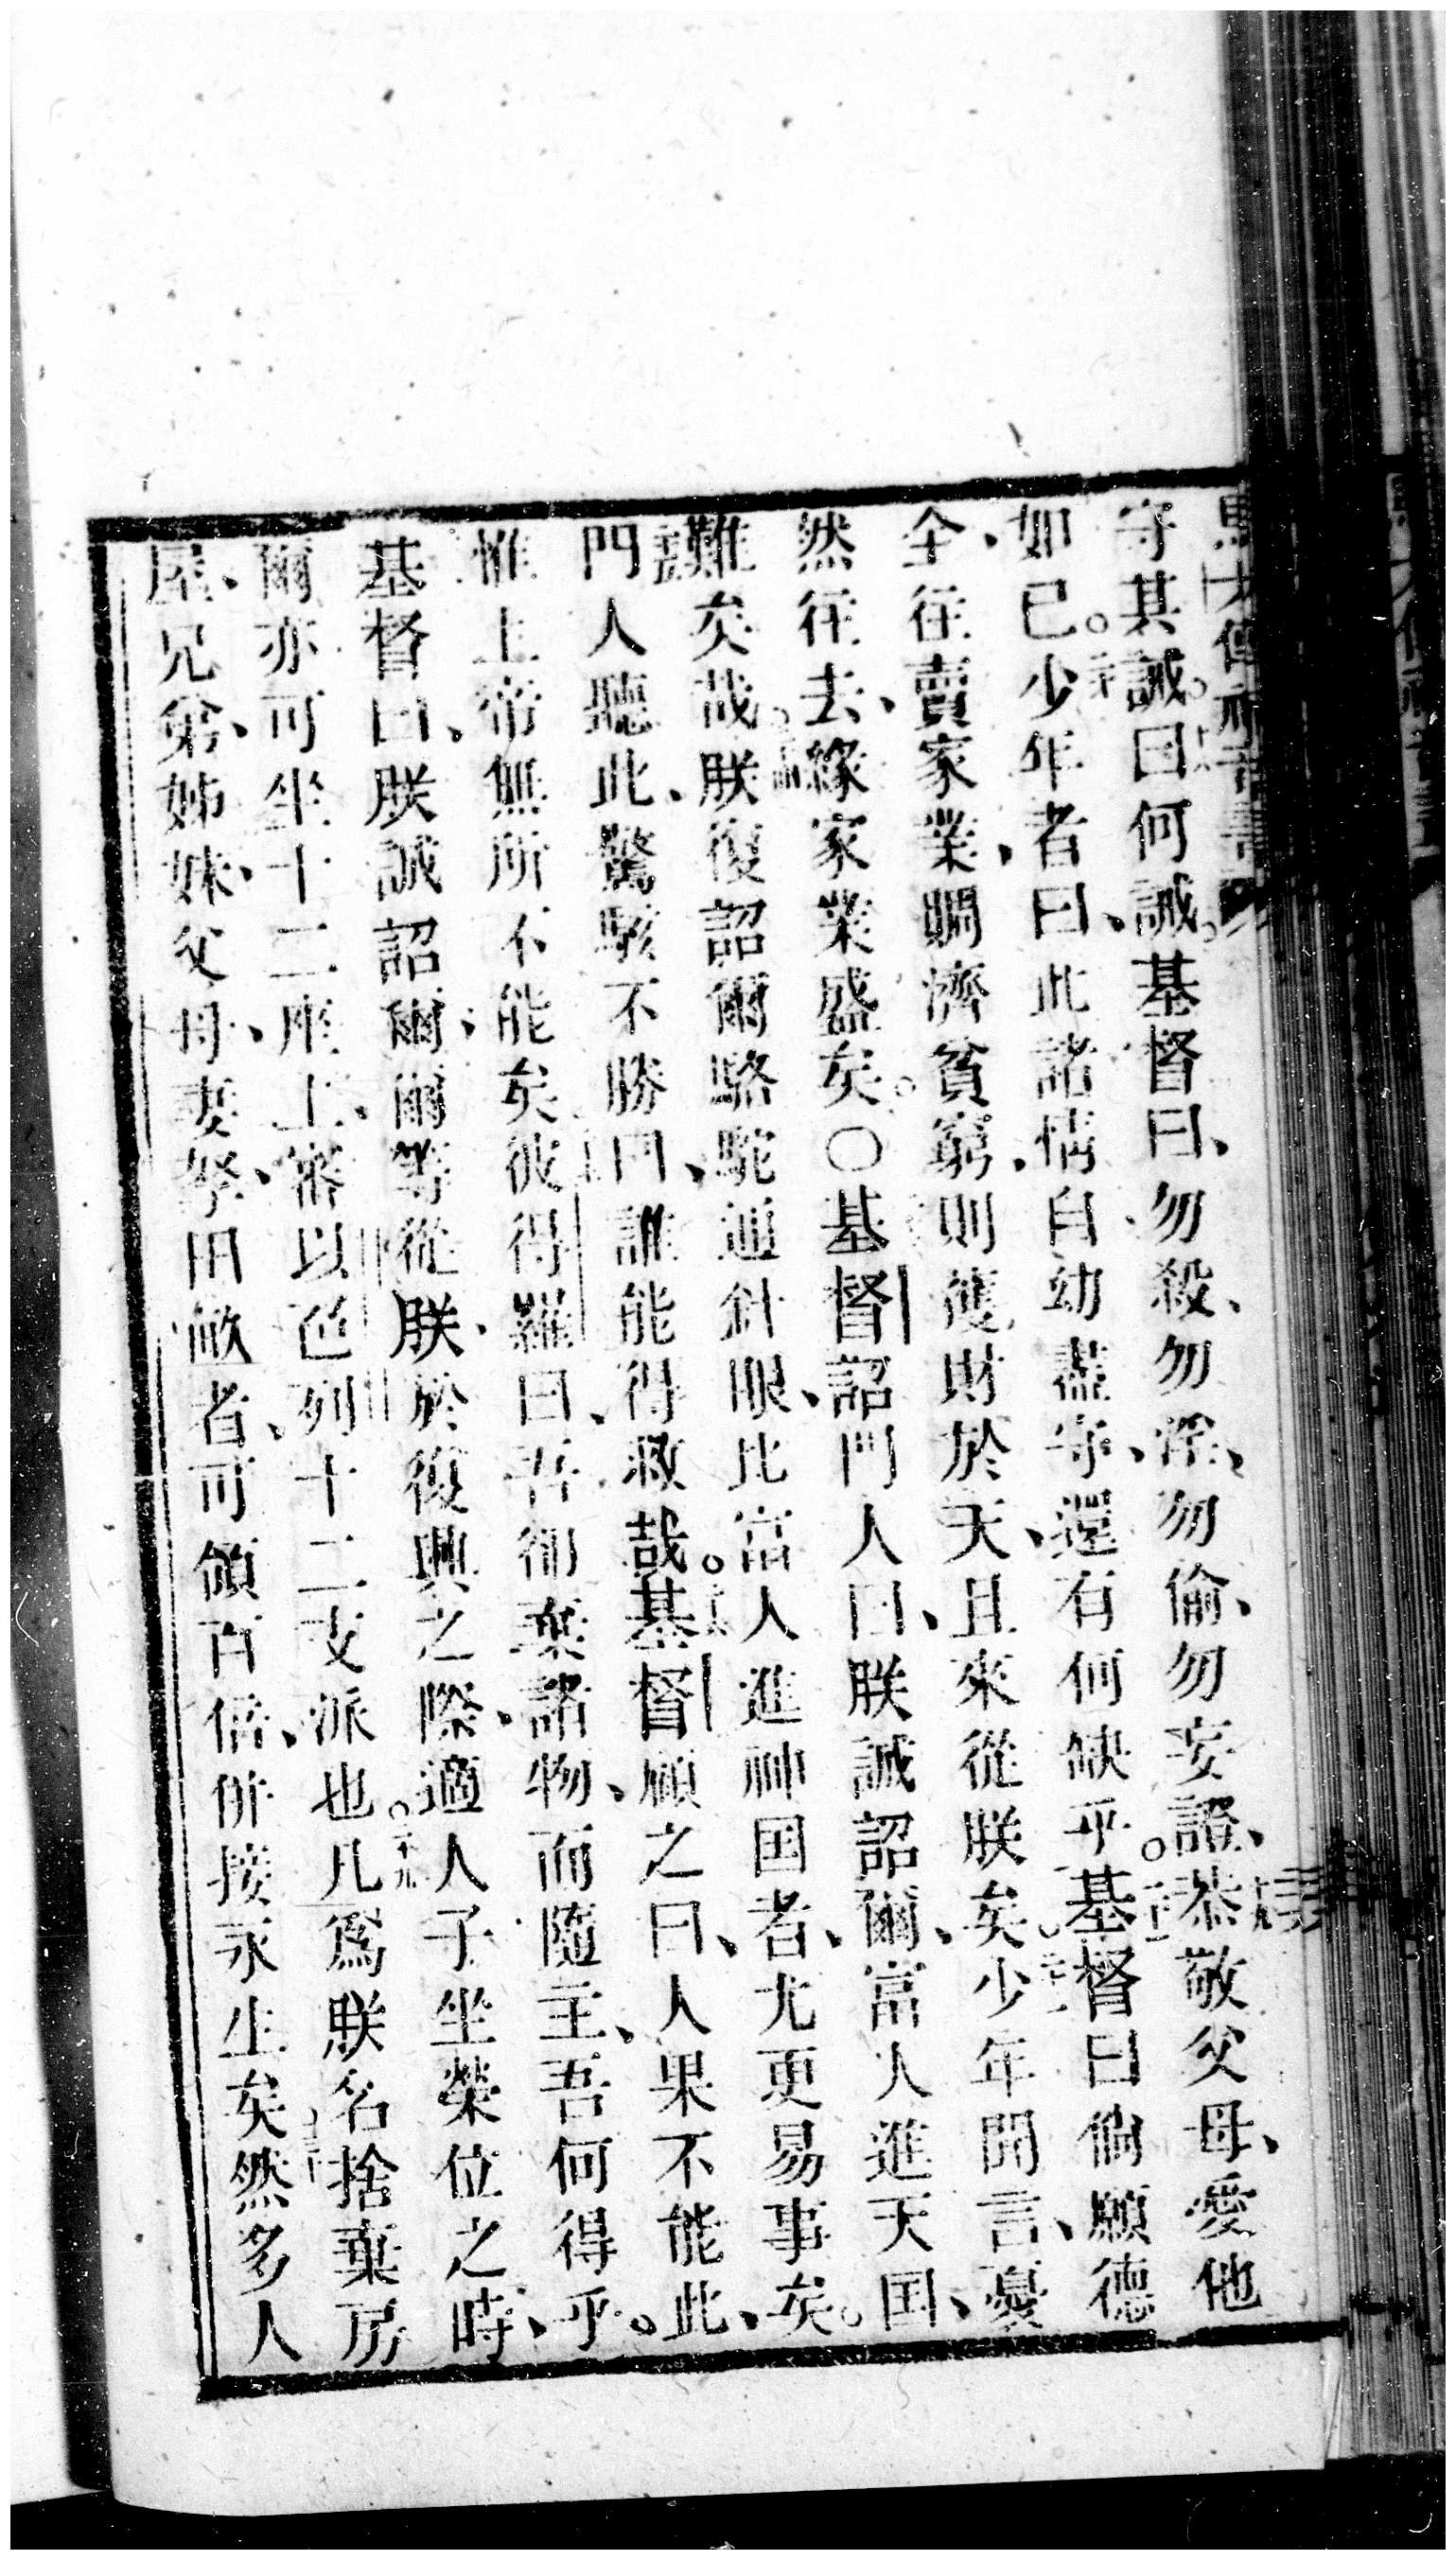 馬太傳福音書
守其誡。曰何誡。基督曰、勿殺、勿淫、勿偷、勿妄證、恭敬父母、愛他
如己。少年者曰、此諸情自幼盡守、還有何缺乎。基督曰倘願德
全、往賣家業、賙濟貧窮、則獲財於天、且來從朕矣。少年聞言、憂
然往去、緣家業盛矣。○基督詔門人曰、朕誠詔爾、富人進天国、
難矣哉。朕復詔爾駱駝通針眼、比富人進神国者、尤更易事矣。
門人聽此、驚駭不勝曰、誰能得救哉。基督顧之曰、人果不能此、
惟上帝無所不能矣彼得羅曰、吾衕棄諸物、而隨主、吾何得乎。
基督曰、朕誠詔爾、爾等從朕、於復興之際、適人子坐榮位之時、
爾亦可坐十二座上、審以色列十二支派也。凡爲朕名捨棄房
屋、兄弟、姊妹、父母、妻孥、田畝者、可領百倍、併接永生矣然多人